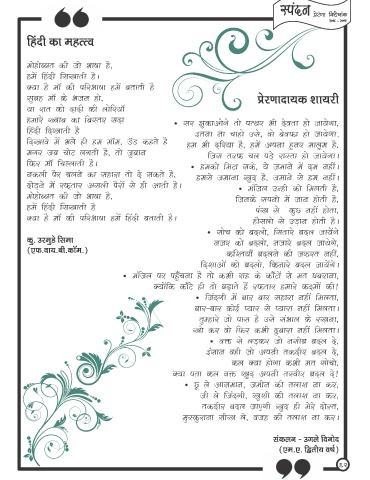 स्पंदन
प्रेरणा
हिंदी का महत्त्व
मोहोब्बत की जो भाषा है,
हमें हिंदी सिखाती है।
क्या है माँ की परिभाषा हमें बताती है
सुबह माँ के भजन हो,
या रात को दादी की लोरियाँ
हमारे ख्वाब का बिस्तर सदा
हिंदी दिखाती है
दिखावे में भले ही हम मॉम, डॅड कहते है
मगर जब चोट लगती है, तो जुबान
फिर माँ चिल्लाती है।
नकली पैर चलने का सहारा तो दे सकते है,
दौड़ने में रफ्तार असली पैरों से ही आती है।
मोहोब्बत की जो भाषा है,
हमें हिंदी सिखाती है
क्या है माँ की परिभाषा हमें हिंदी बताती है।
कु. उरमुडे सिमा
(एफ.वाय.बी.कॉम.)
प्रेरणादायक शायरी
• सर झुकाओगे तो पत्थर भी देवता हो जायेगा,
इतना ना चाहो उसे, वो बेवफा हो जायेगा,
हम भी दरिया है, हमें अपना हुनर मालूम है,
जिस तरफ चल पड़े रास्ता हो जायेगा।
• हमको मिटा सके, ये जमाने में दम नहीं।
हमसे जमाना खुद है, जमाने से हम नहीं।
• मंजिल उन्ही को मिलती है,
जिनके सपनो में जान होती है,
पंख से कुछ नहीं होता,
हौसलो से उड़ान होती है।
• सोच को बदलो, सितारे बदल जायेंगे
नजर को बदलो, नजारे बदल जायेंगे,
कश्तियाँ बदलने की जरूरत नहीं,
दिशाओं को बदलो, किनारे बदल जायेंगे।
• मंजिल पर पहुँचना है तो कभी राह के काँटों से मत घबराना,
क्योंकि काँटे ही तो बढ़ाते हैं रफ्तार हमारे कदमों की!
• जिंदगी में बार बार सहारा नहीं मिलता,
बार-बार कोई प्यार से प्यारा नहीं मिलता।
तुम्हारे जो पास है उसे संभाल के रखना,
खो कर वो फिर कभी दुबारा नहीं मिलता।
• वक्त से लड़कर जो नसीब बदल दे,
इंसान वही जो अपनी तकदीर बदल दे,
कल क्या होगा कभी मत सोचो,
क्या पता कल वक्त खुद अपनी तस्वीर बदल दे!
• छू ले आसमान, जमीन की तलाश ना कर,
जी ले जिंदगी, खुशी की तलाश ना कर,
तकदीर बदल जाएगी खुद ही मेरे दोस्त,
मुस्कुराना सीख ले, वजह की तलाश ना कर।
संकलन - उगले विनोद
(एम.ए. द्वितीय वर्ष)